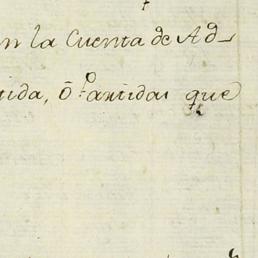 en la Cuenta de Ad-
tida, ō partidas que